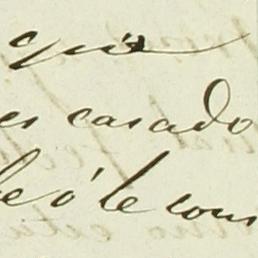 que
es casado
le ó le cons